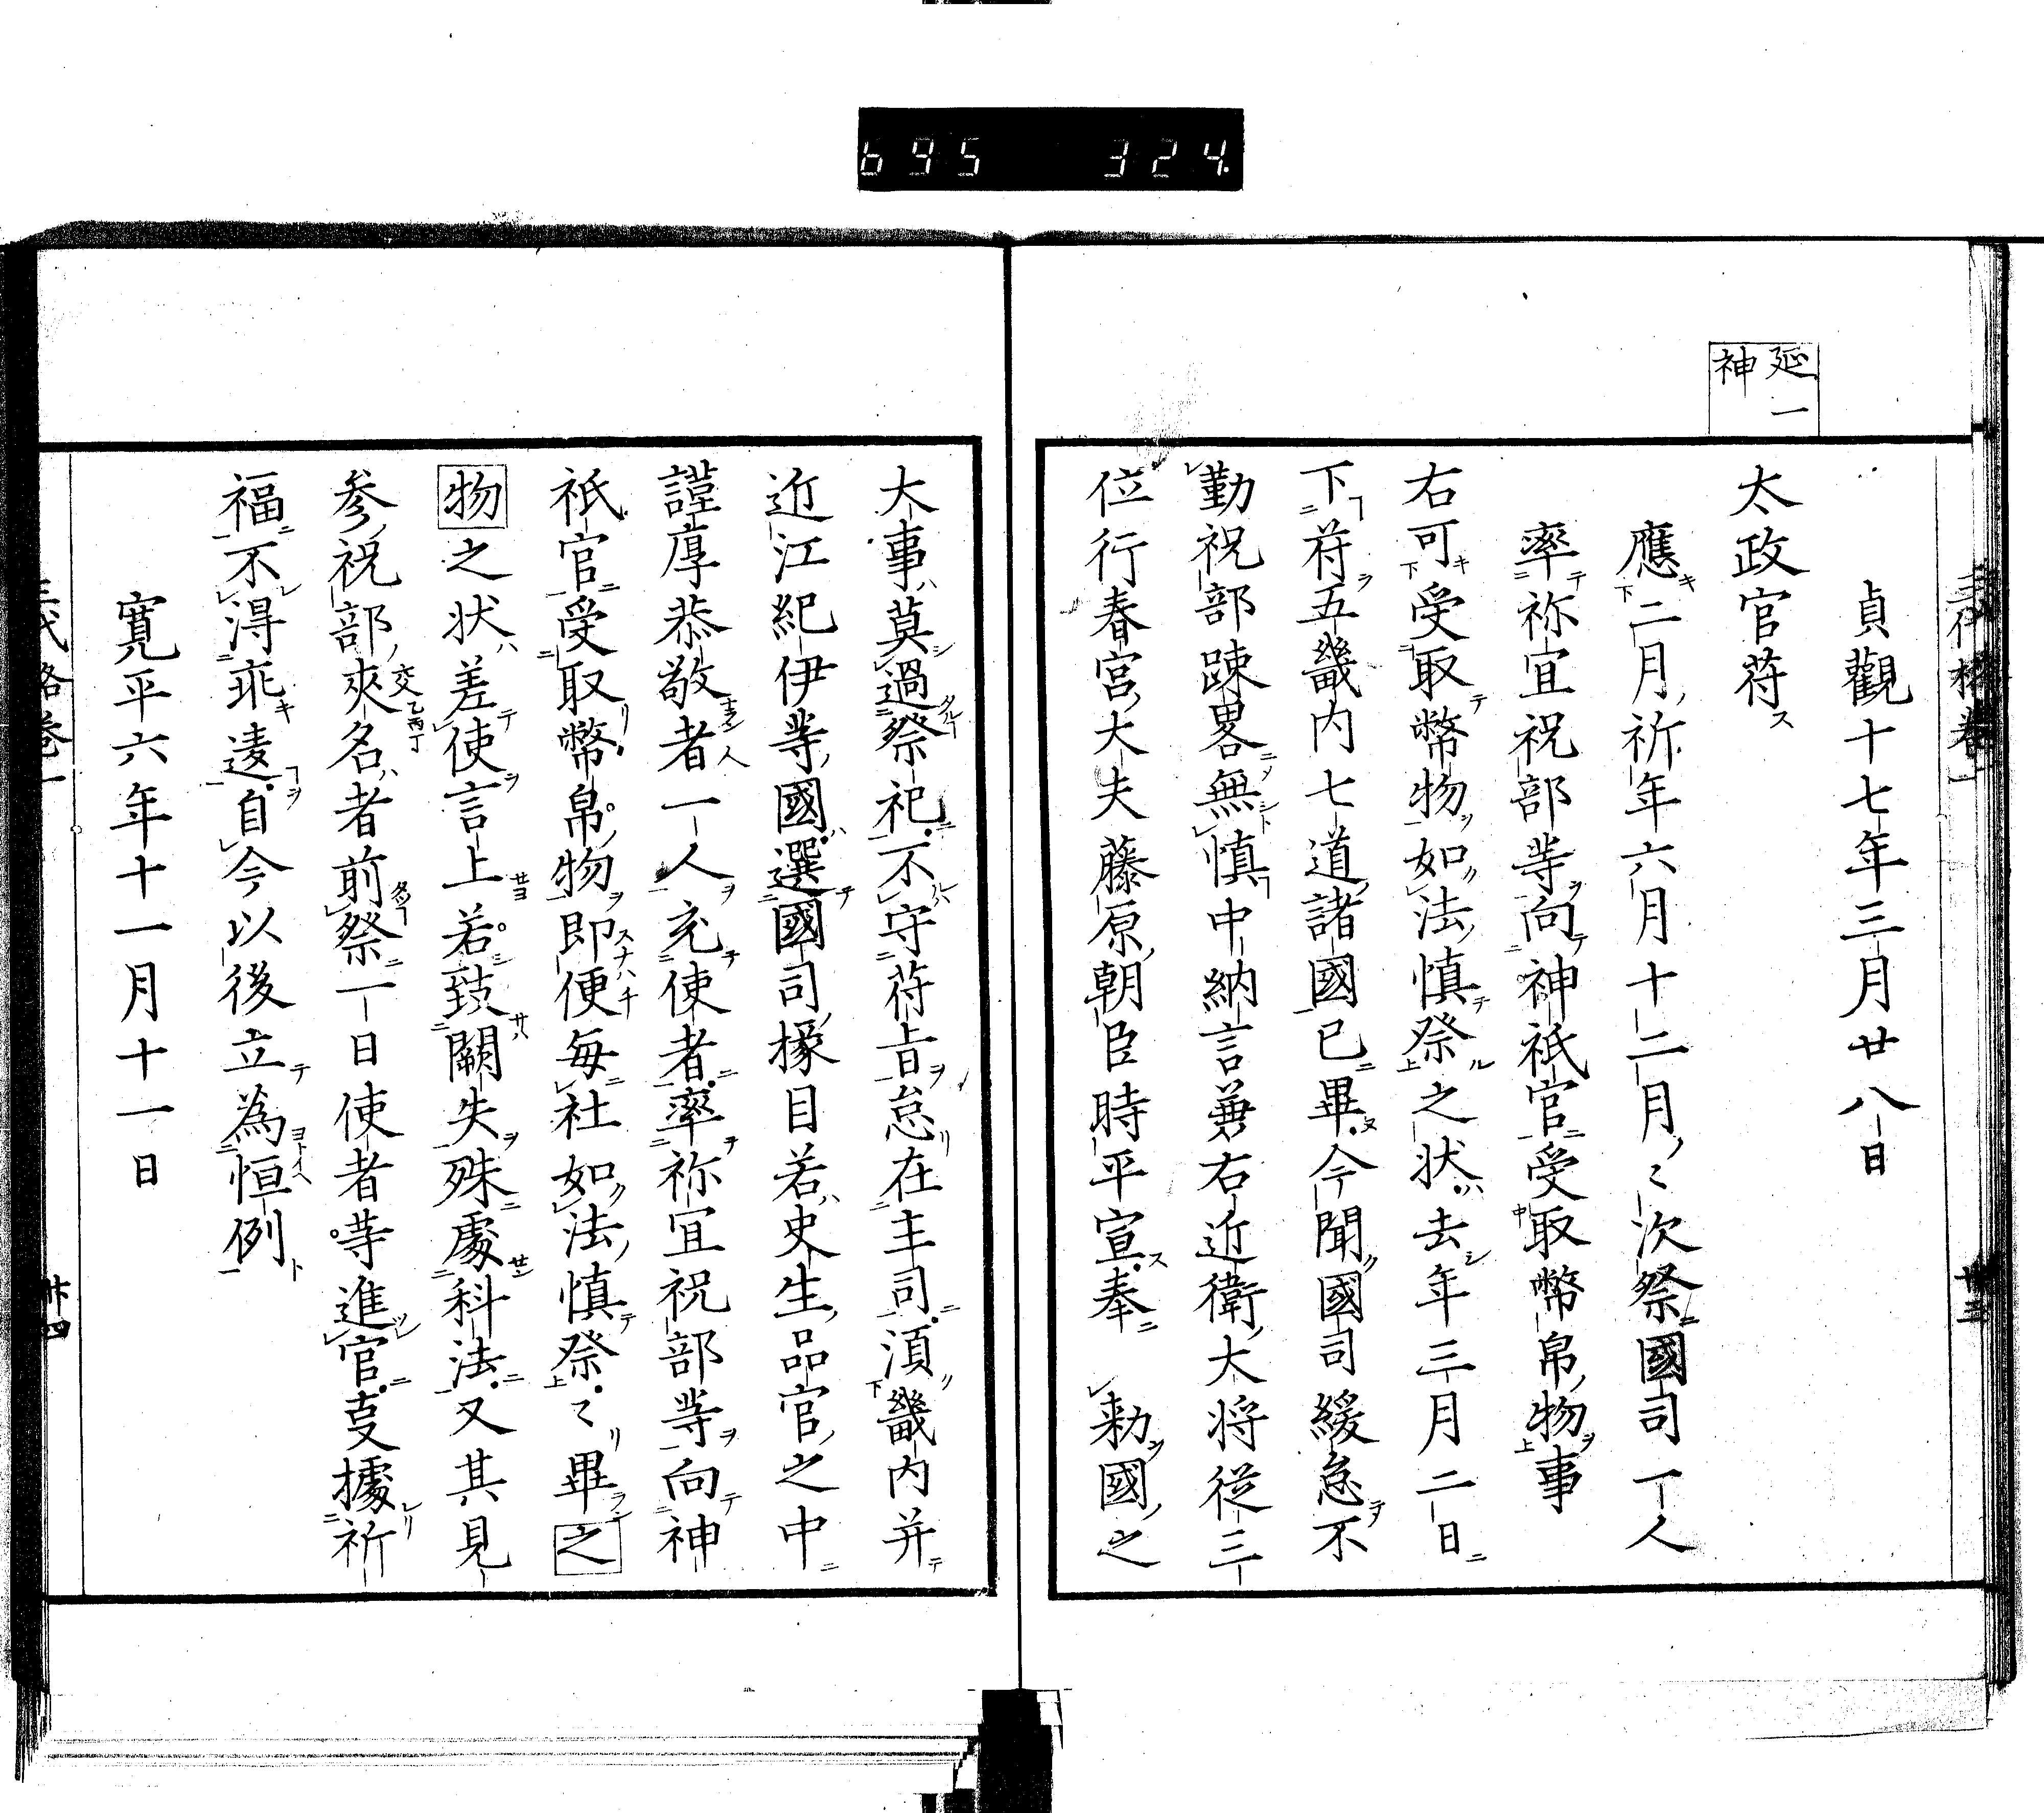 695 324
延一
神
貞觀十七年三月廿八日
太政官苻
應二月祈年六月十二月〻次祭國司一人
率祢宜祝部等向神祇官受取幣帛物事
右可受取幣物如法慎祭之状去年三月二日
下苻五畿内七道諸國已畢今聞國司緩怠不
勤祝部踈畧無慎中納言兼右近衛大将從三
位行春宮大夫藤原朝臣時平宣奉　勅國之
大事莫過祭祀不守苻旨怠在主司湏畿内并
近江紀伊等國選國司掾目若史生品官之中
謹厚恭敬者一人充使者率祢宜祝部等向神
祇官受取幣帛物即便毎社如法慎祭〻畢之
物之状差使言上若致闕失殊處科法又其見
参祝部夾名者前祭一日使者等進官㕝據祈
交乙丙丁
福不得乖違自今以後立為恒例
寛平六年十一月十一日